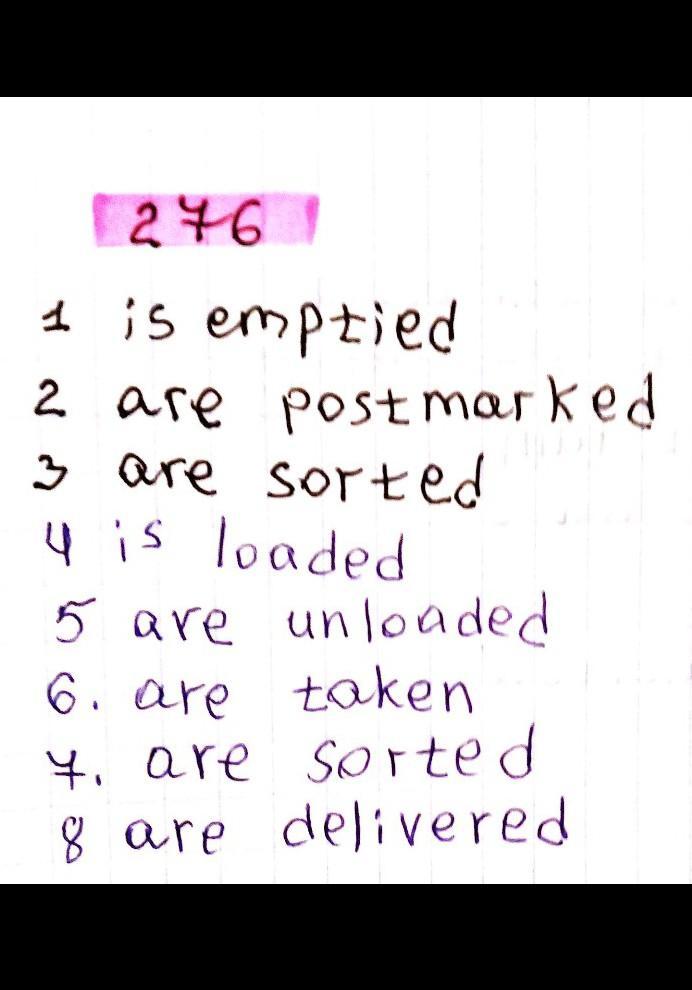 276
1 is emptied
2 are postmarked
3 are sorted
4 is loaded
5 are unloaded
6. are taken
7. are sorted
8 are delivered